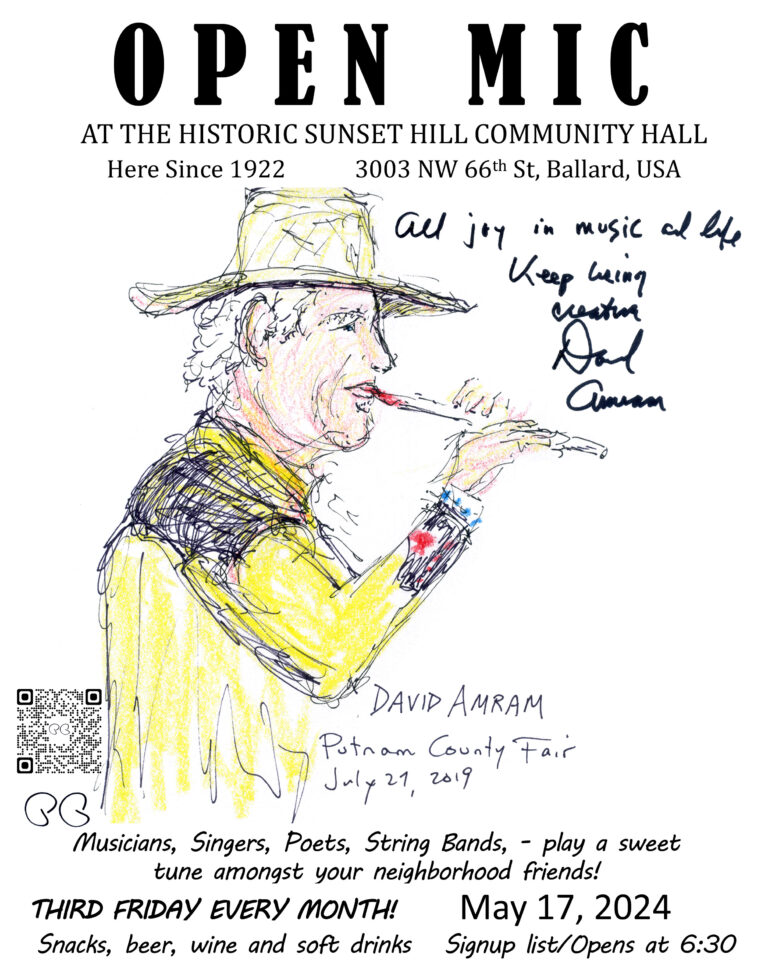 OPEN MIC
AT THE HISTORIC SUNSET HILL COMMUNITY HALL
Here Since 1922 3003 NW 66th St, Ballard, USA
All joy in music and life
Keep being
creative
David
Amram
DAVID AMRAM
Putnam County Fair
July 27, 2019
Musicians, Singers, Poets, String Bands, - play a sweet
tune amongst your neighborhood friends!
THIRD FRIDAY EVERY MONTH! May 17, 2024
Snacks, beer, wine and soft drinks Signup list/Opens at 6:30